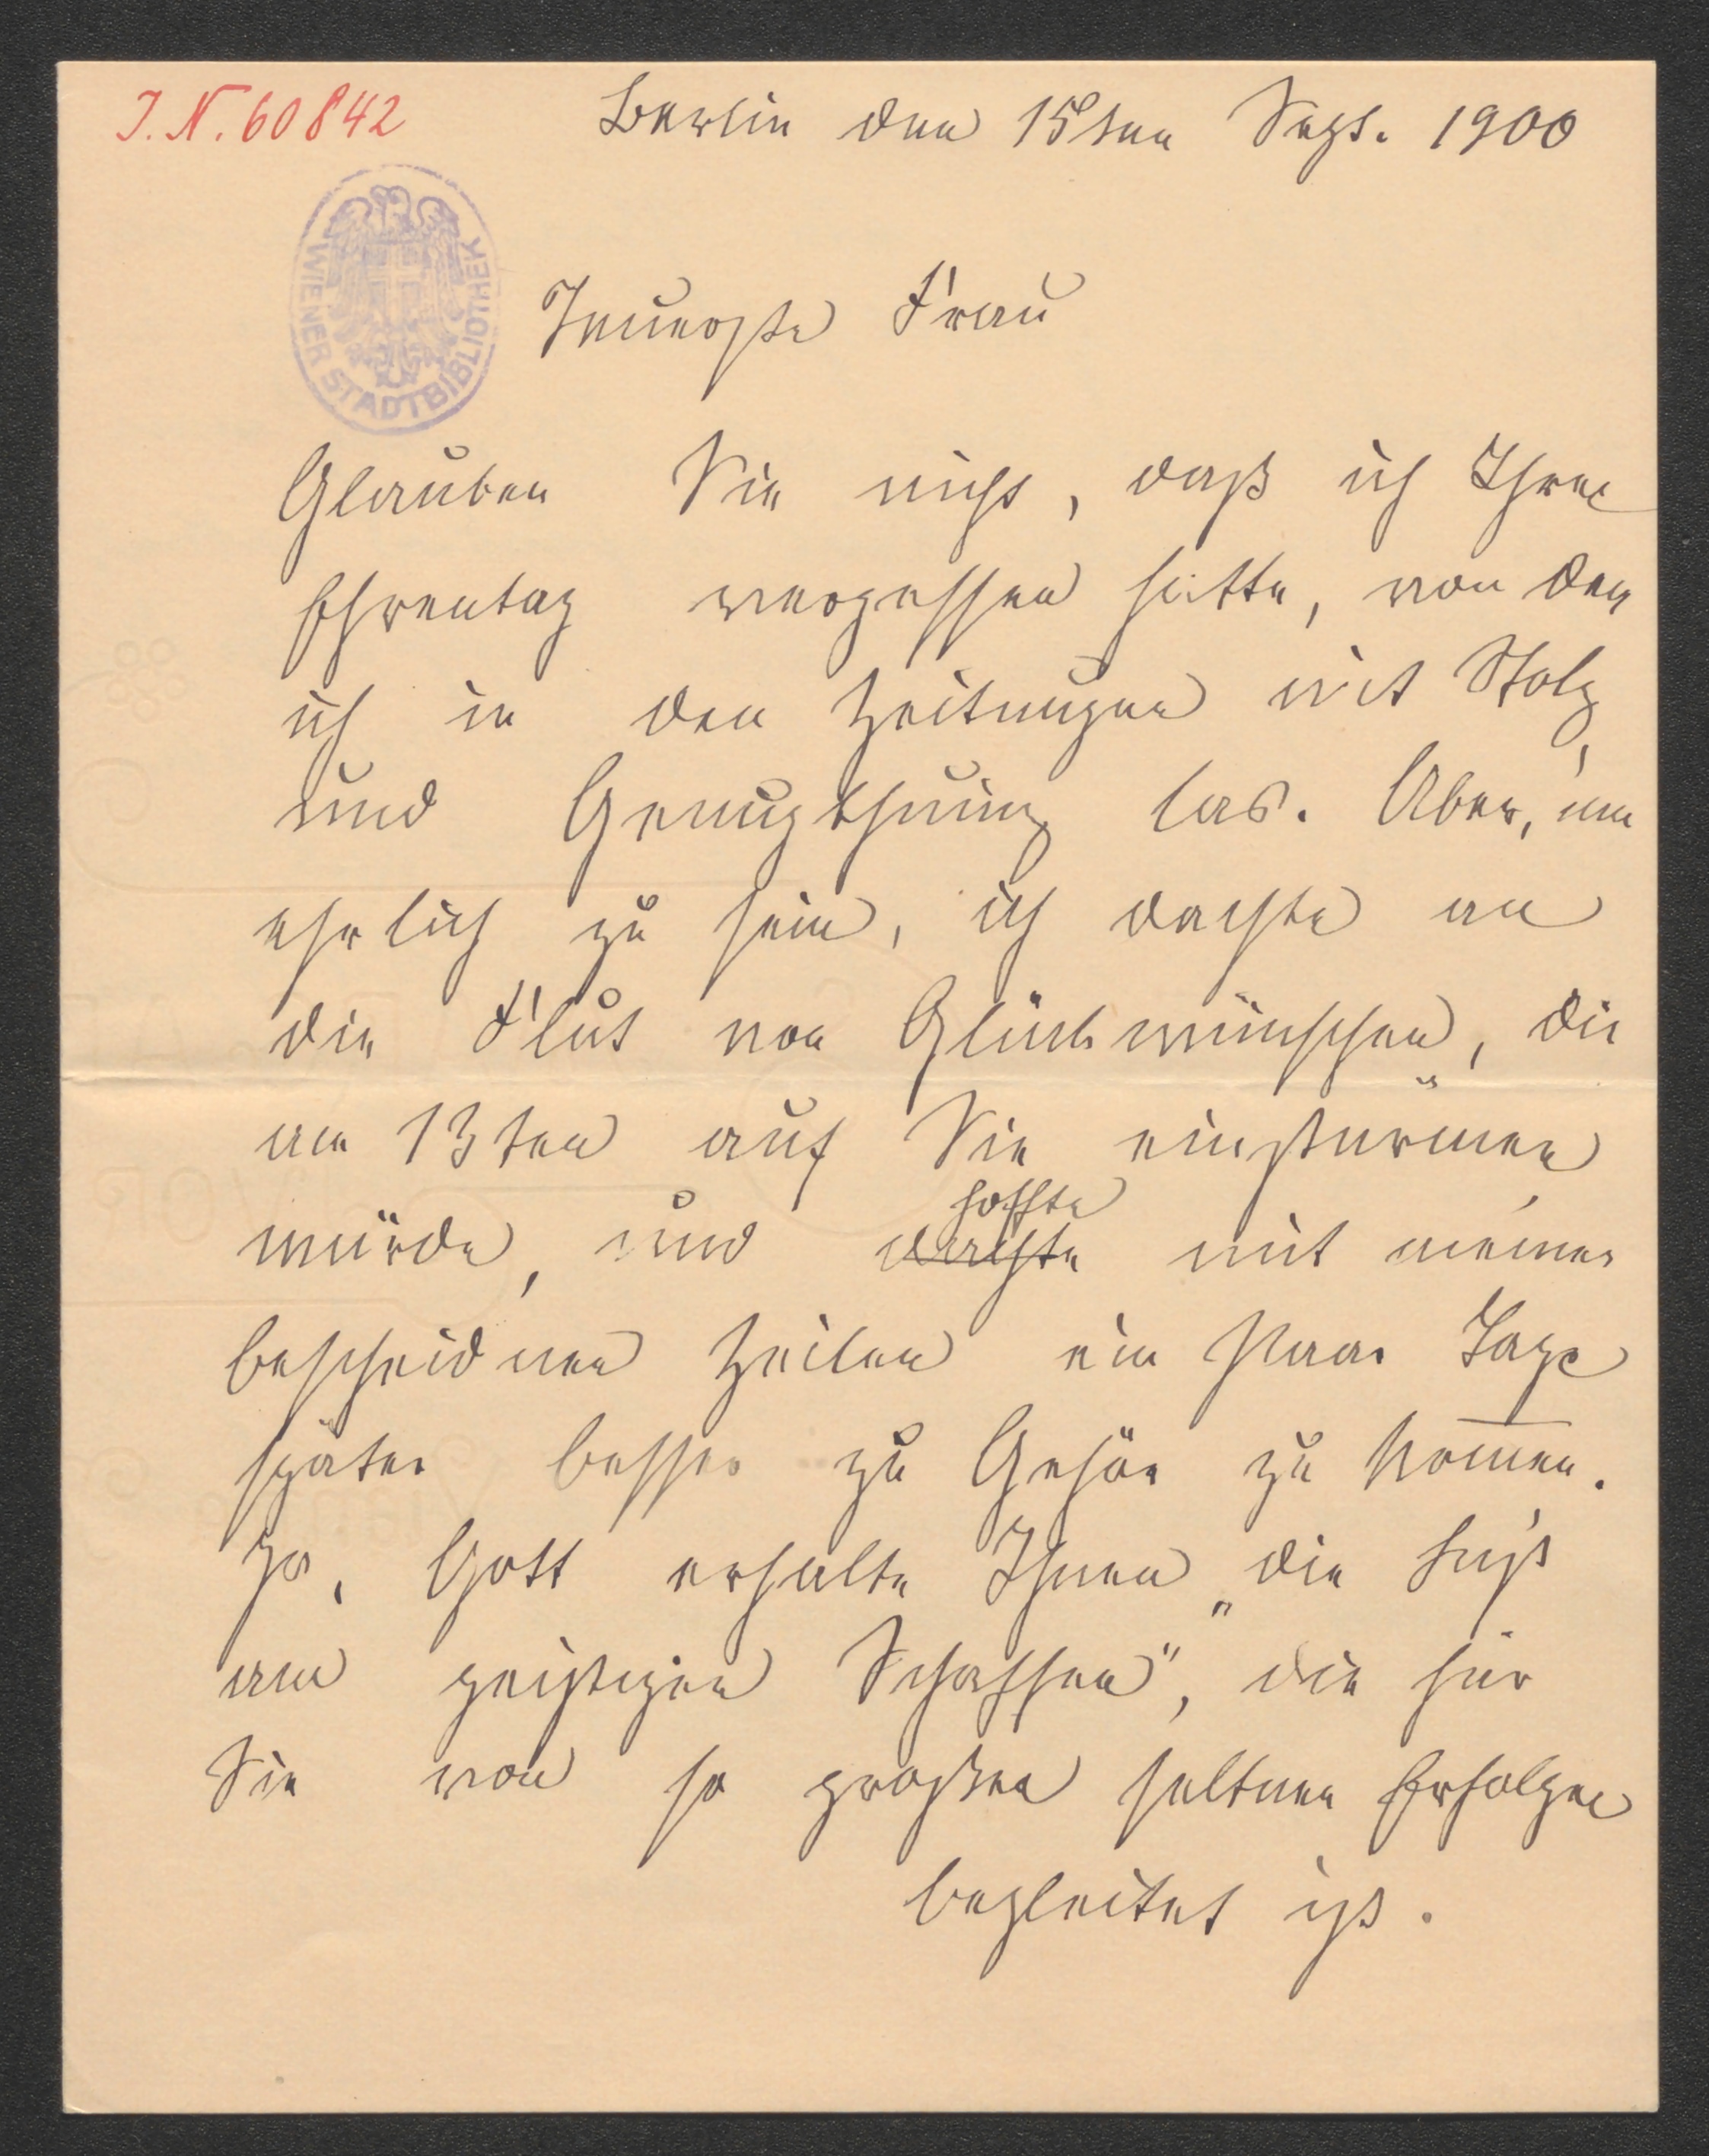 I. N. 60842
Berlin den 15ten Sept. 1900
WIENER STADTBIBLIOTHEK
Teuerste Frau
Glauben Sie nicht, daß ich Ihren
Ehrentag vergessen hätte, von dem
ich in den Zeitungen mit Stolz
und Genugthuung las. Aber, um
ehrlich zu sein, ich dachte an
die Flut von Glückwünschen, die
am 13ten auf Sie einstürmen
würde, und dachte mit meinen
hoffte
bescheidnen Zeilen ein Paar Tage
später besser zu Gehör zu kom̅en.
Ja, Gott erhalte Ihnen „die Lust
am geistigen Schaffen", die für
Sie von so großen seltnen Erfolgen
begleitet ist.